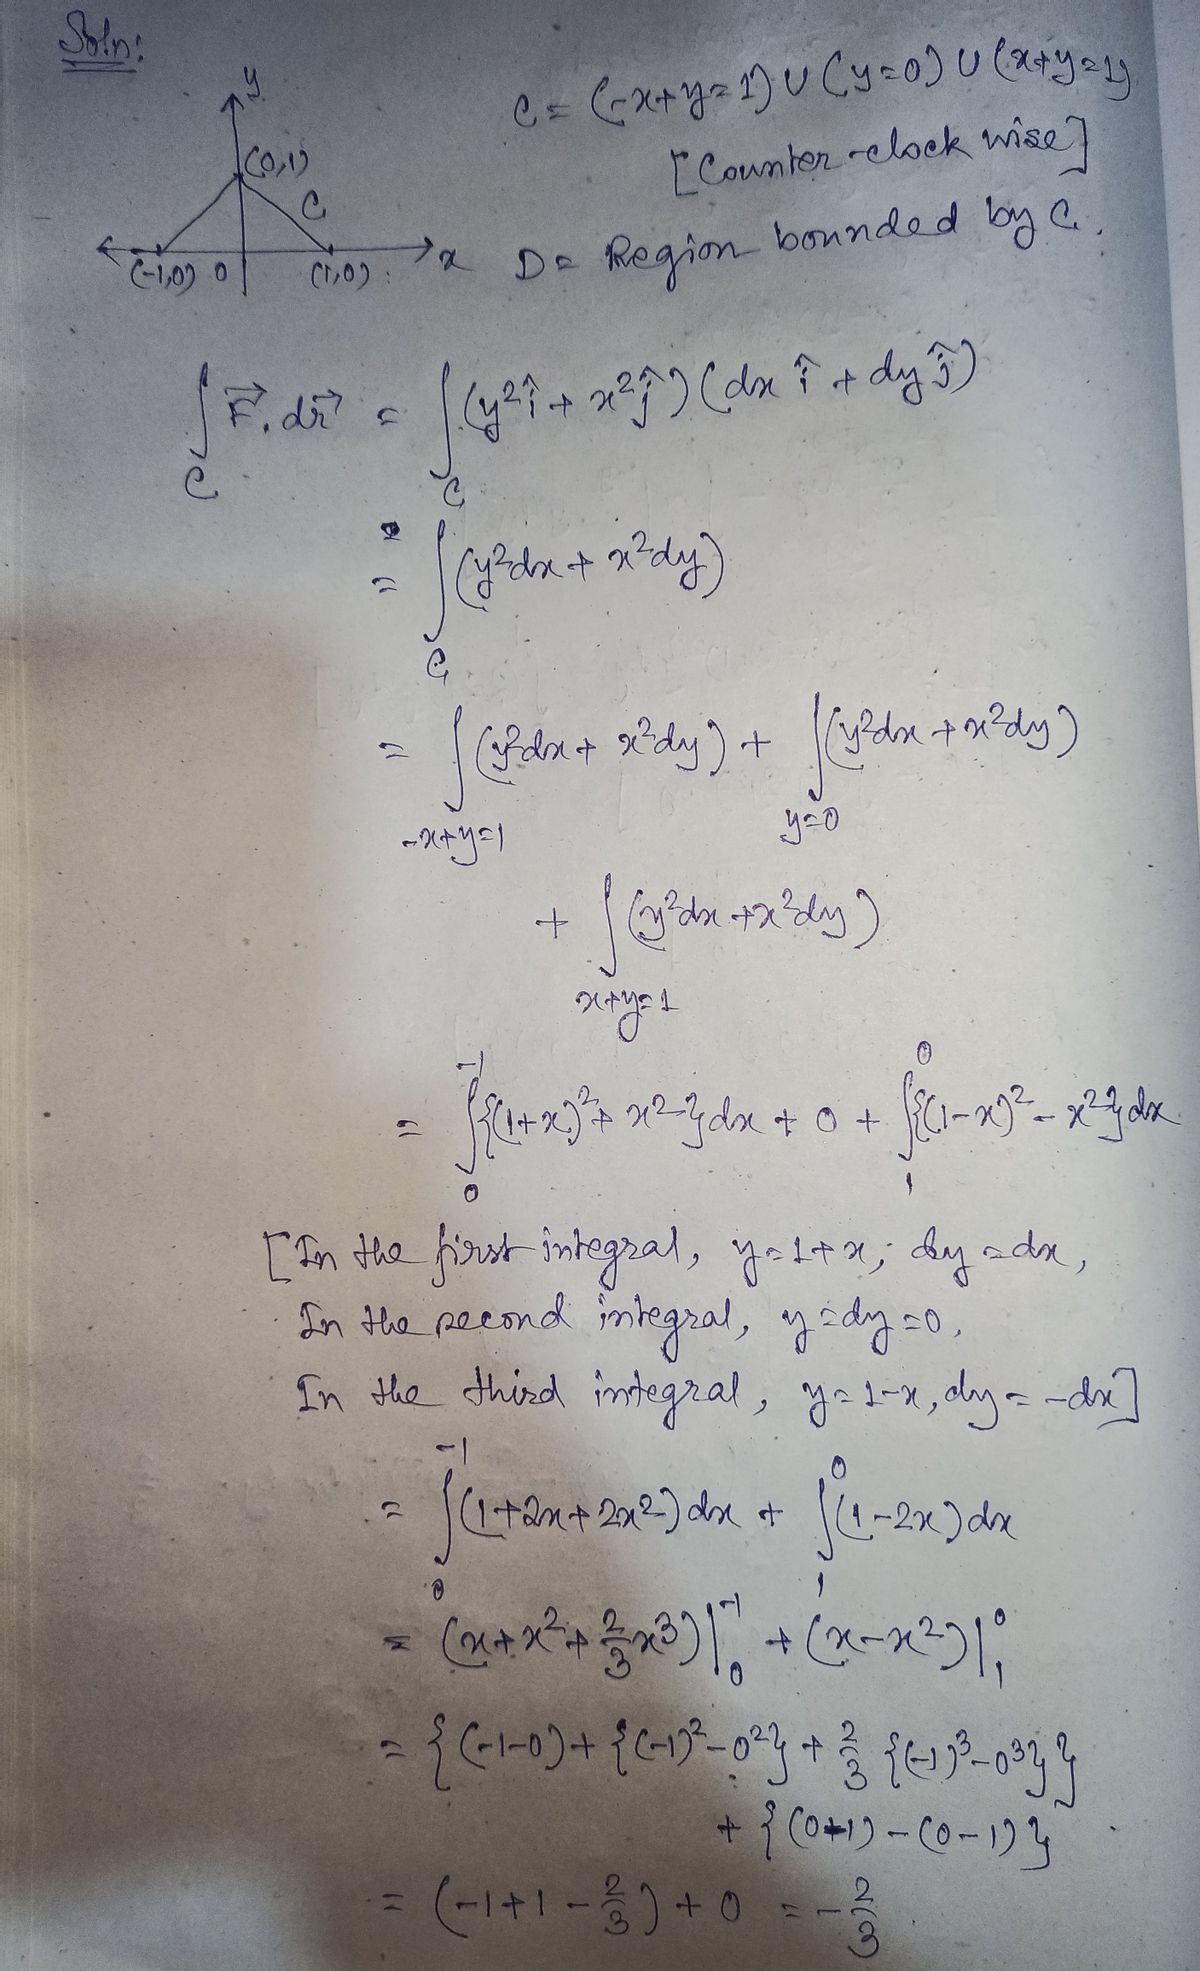 Soln:
C = (-x+y=1) ∪ (y=0) ∪ (x+y=1)
[Counter-clock wise]
D = Region bounded by C.
y
(0,1)
C
(-1,0) O (1,0) x
∫_C F⃗.dr⃗ = ∫_C (y²î + x²ĵ)(dx î + dy ĵ)
= ∫_C (y²dx + x²dy)
= ∫_{-x+y=1} (y²dx + x²dy) + ∫_{y=0} (y²dx + x²dy)
+ ∫_{x+y=1} (y²dx + x²dy)
= ∫_0^{-1} {(1+x)² + x²}dx + 0 + ∫_1^0 {(1-x)² - x²}dx
[In the first integral, y=1+x; dy=dx,
In the second integral, y=dy=0,
In the third integral, y=1-x, dy=-dx]
= ∫_0^{-1} (1+2x+2x²)dx + ∫_1^0 (1-2x)dx
= (x+x²+2/3 x³)|_0^{-1} + (x-x²)|_1^0
= {(-1-0)+{(-1)²-0²}+2/3{(-1)³-0³}}
+ {(0-1)-(0-1)}
= (-1+1-2/3)+0 = -2/3